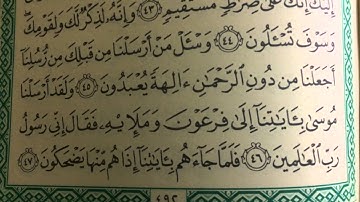 إِلَيْكَ إِنَّكَ عَلَىٰ صِرَٰطٍ مُّسْتَقِيمٍ ٤٣ وَإِنَّهُۥ لَذِكْرٌ لَّكَ وَلِقَوْمِكَ ۖ
وَسَوْفَ تُسْـَٔلُونَ ٤٤ وَسْـَٔلْ مَنْ أَرْسَلْنَا مِن قَبْلِكَ مِن رُّسُلِنَآ
أَجَعَلْنَا مِن دُونِ ٱلرَّحْمَٰنِ ءَالِهَةً يُعْبَدُونَ ٤٥ وَلَقَدْ أَرْسَلْنَا
مُوسَىٰ بِـَٔايَٰتِنَآ إِلَىٰ فِرْعَوْنَ وَمَلَإِي۟هِۦ فَقَالَ إِنِّى رَسُولُ
رَبِّ ٱلْعَٰلَمِينَ ٤٦ فَلَمَّا جَآءَهُم بِـَٔايَٰتِنَآ إِذَا هُم مِّنْهَا يَضْحَكُونَ ٤٧
٤٩٢